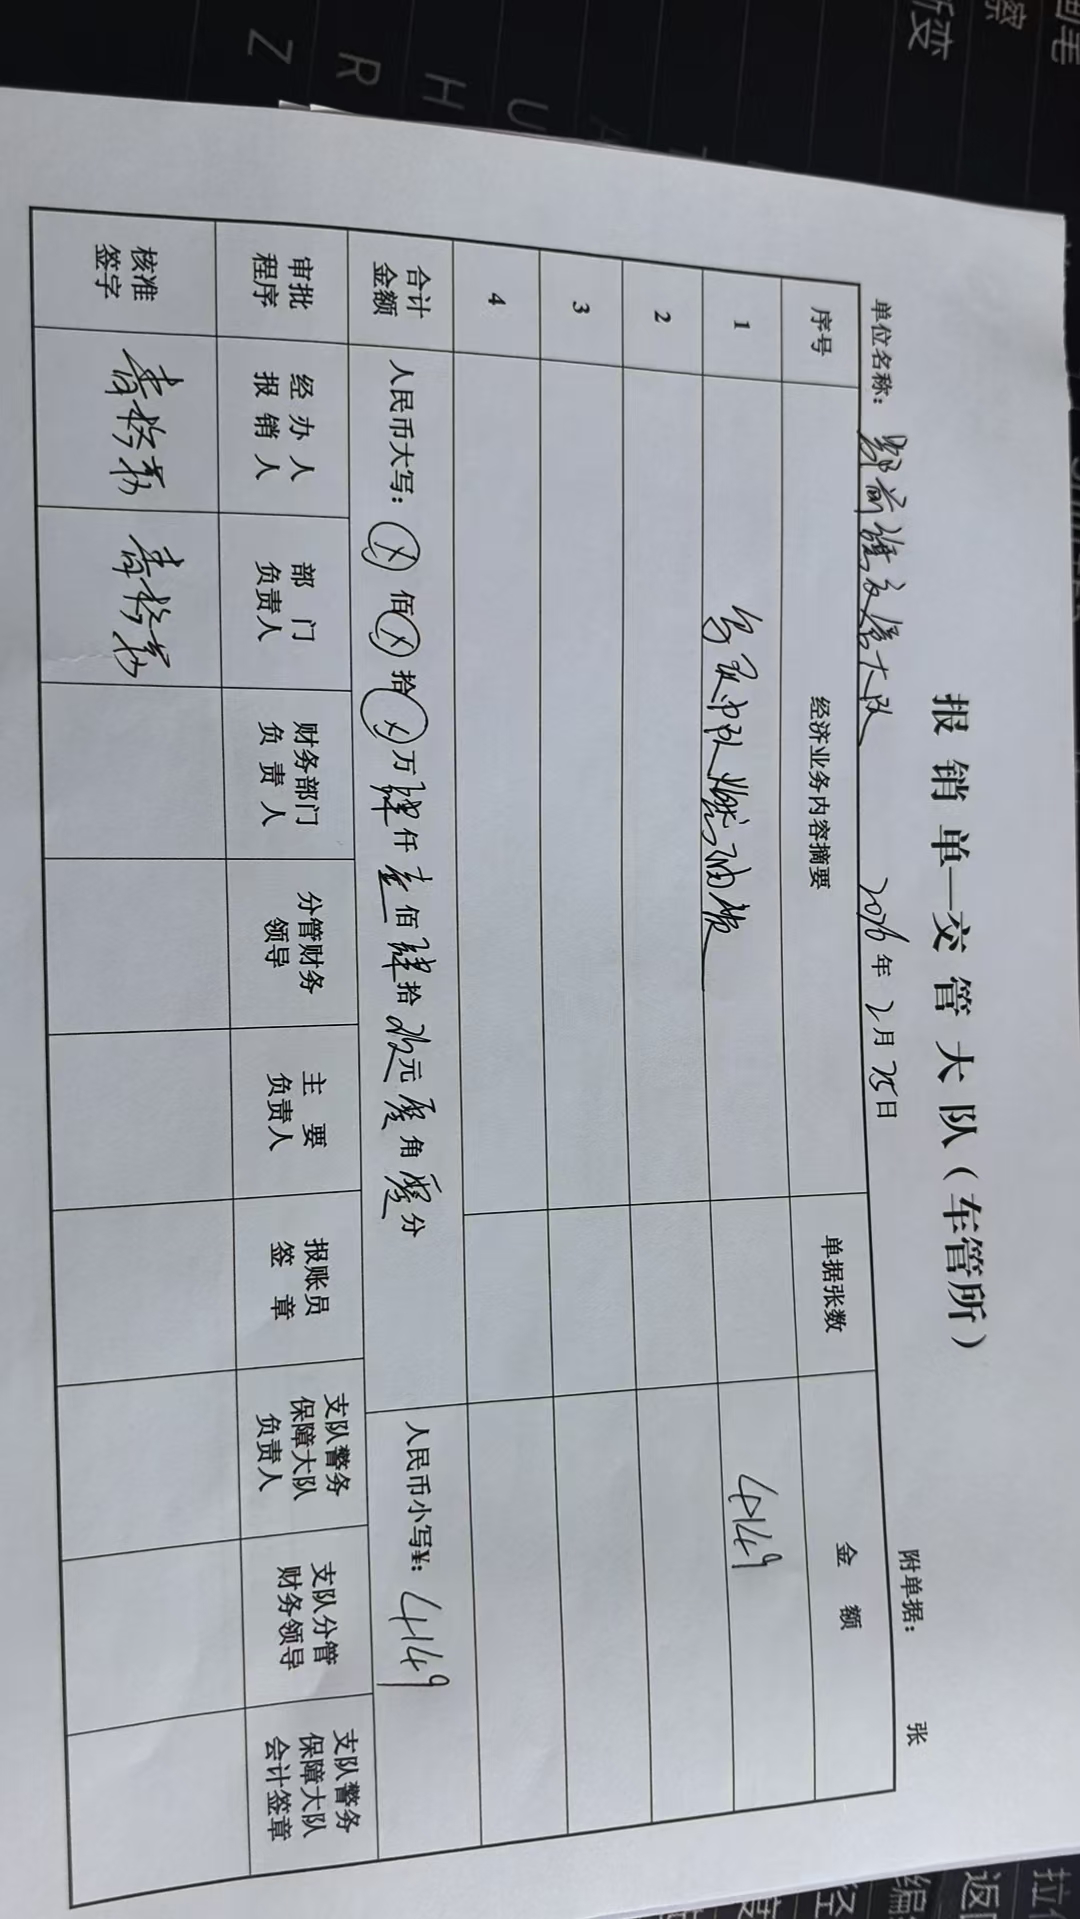 报销单—交管大队（车管所）
单位名称：鄂前旗交管大队 2026年2月25日 附单据： 张
序号 经济业务内容摘要 单据张数 金额
1 中队燃油费 4149
2
3
4
合计金额 人民币大写：ⓧ佰ⓧ拾ⓧ万肆仟壹佰肆拾玖元零角零分 人民币小写¥：4149
审批程序 经办人报销人 部门负责人 财务部门负责人 分管财务领导 主要负责人 报账员签章 支队警务保障大队负责人 支队分管财务领导 支队警务保障大队会计签章
核准签字
Z R H U